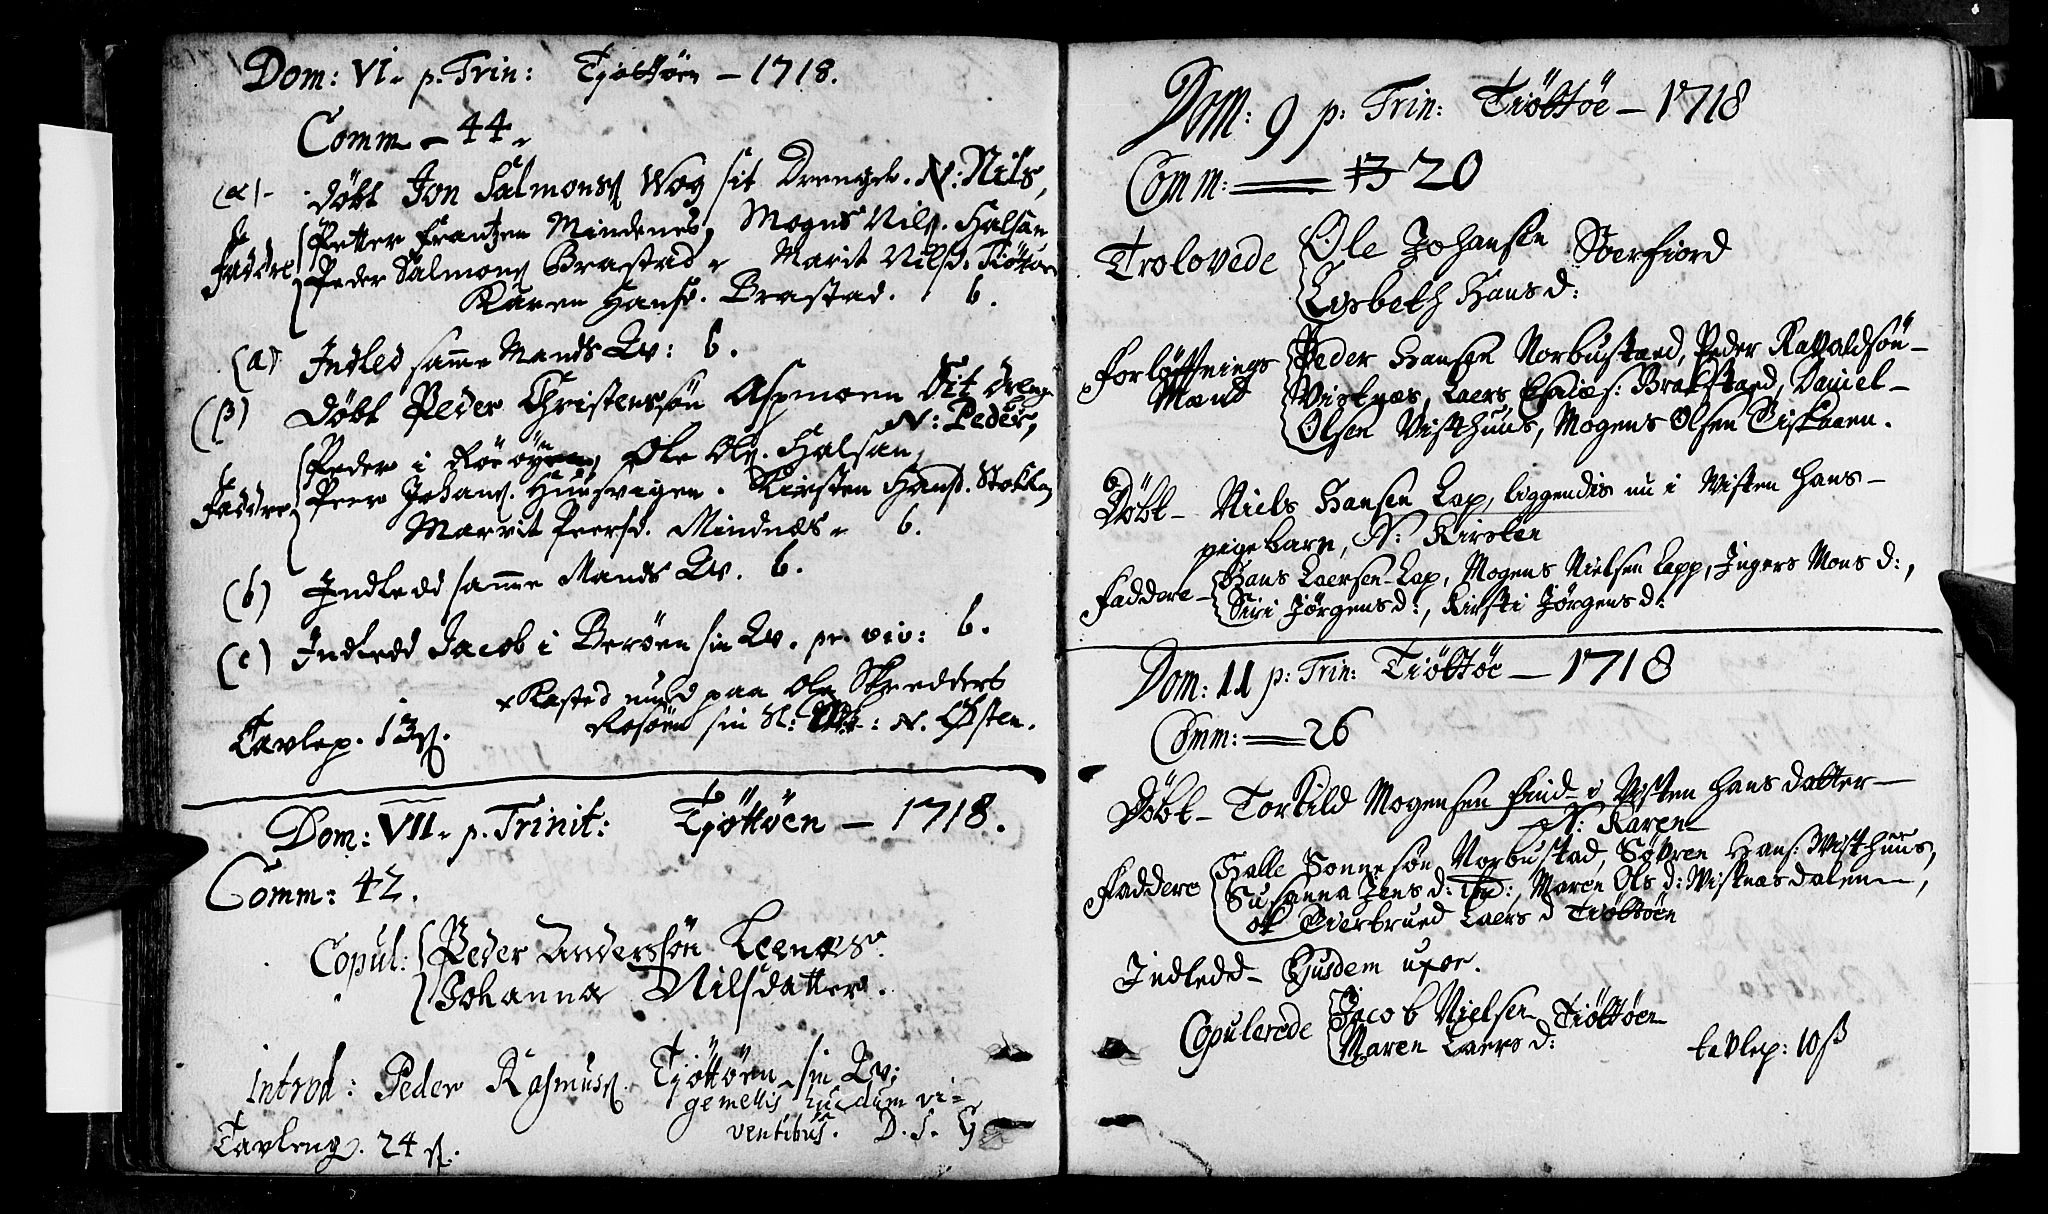 Dom: VI. p. Trin: Tjøttøen – 1718.
Comm – 44.
(α) – døbt Jon Salmons Wog sit Drengeb. N: Nils,
Faddre Petter Frantzen Mindenes, Mogns Nils. Halsan
Peder Salmons Brastad. Marit Nilsd. Tiøttøen
Karen Hansd. Brastad. 6.
(a) Indled samme Mands Qv: 6.
(β) Døbt Peder Christenssøn Aspmoen Sit dreng
N: Peder,
Faddre Peder i Rørøyen, Ole Ols. Halsan,
Peer Johans. Huusvigen. Kirsten Hansd.
Marrit Peersd. Mindnæs. 6.
(b) Indledd samme Mands Qv. 6.
(c) Indledd Jacob i Berøen sin Qv. 6.
Kasted muld paa Ole Skredders
Rosøen sin N. Østen.
Tavlep. 13 s.
Dom: VII. p. Trinit: Tjøttøen – 1718.
Comm: 42.
Copul: Peder Anderssøn Leenæs.
Johanna Nilsdatter.
introd: Peder Rasmuss. Tjøttøen sin Qv:
gemellis vi-
ventibus. D. S. G
Tavleng. 24 s.
Dom: 9 p: Trin: Tiøttøe – 1718
Comm: 20
Trolovede Ole Johansen Soerfiord
Lisbeth Hansd:
Forløftnings Peder Hansen Norbustaed, Peder Ravaldsøn –
Mænd Vistnæs, Laers Esaies: Brakstaed, Daniel –
Olsen Visthuus, Mogens Olsen Tiskaaen.
Døbt – Niels Hansen Lap, liggendis nu i Visten hans –
pigebarn, N: Kirsten
Faddere – Hans Laersen Lap, Mogens Nielsen Lapp, Ingers Mons d:,
Siri Jørgens d:, Kirsti Jørgens d:
Dom: 11 p: Trin: Tiøttøe – 1718
Comm: 26
Døbt – Torkild Mogensen Find i Visten hans datter –
N: Karen
Faddere Halle Sonnesøn Norbustad, Søfren Hans: Visthuus,
Susanna Jens d: ibd:, Maren Ols d: Vistnæsdalen,
ok Giertrued Laers d Tiøttøen
Indledd – Ejusdem uxor.
Copulerede Jacob Nielsen Tiøttøen
Maren Laers d:
tavlep: 10 ß